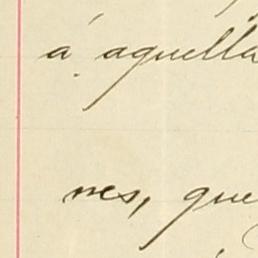 á aquella
nes, que